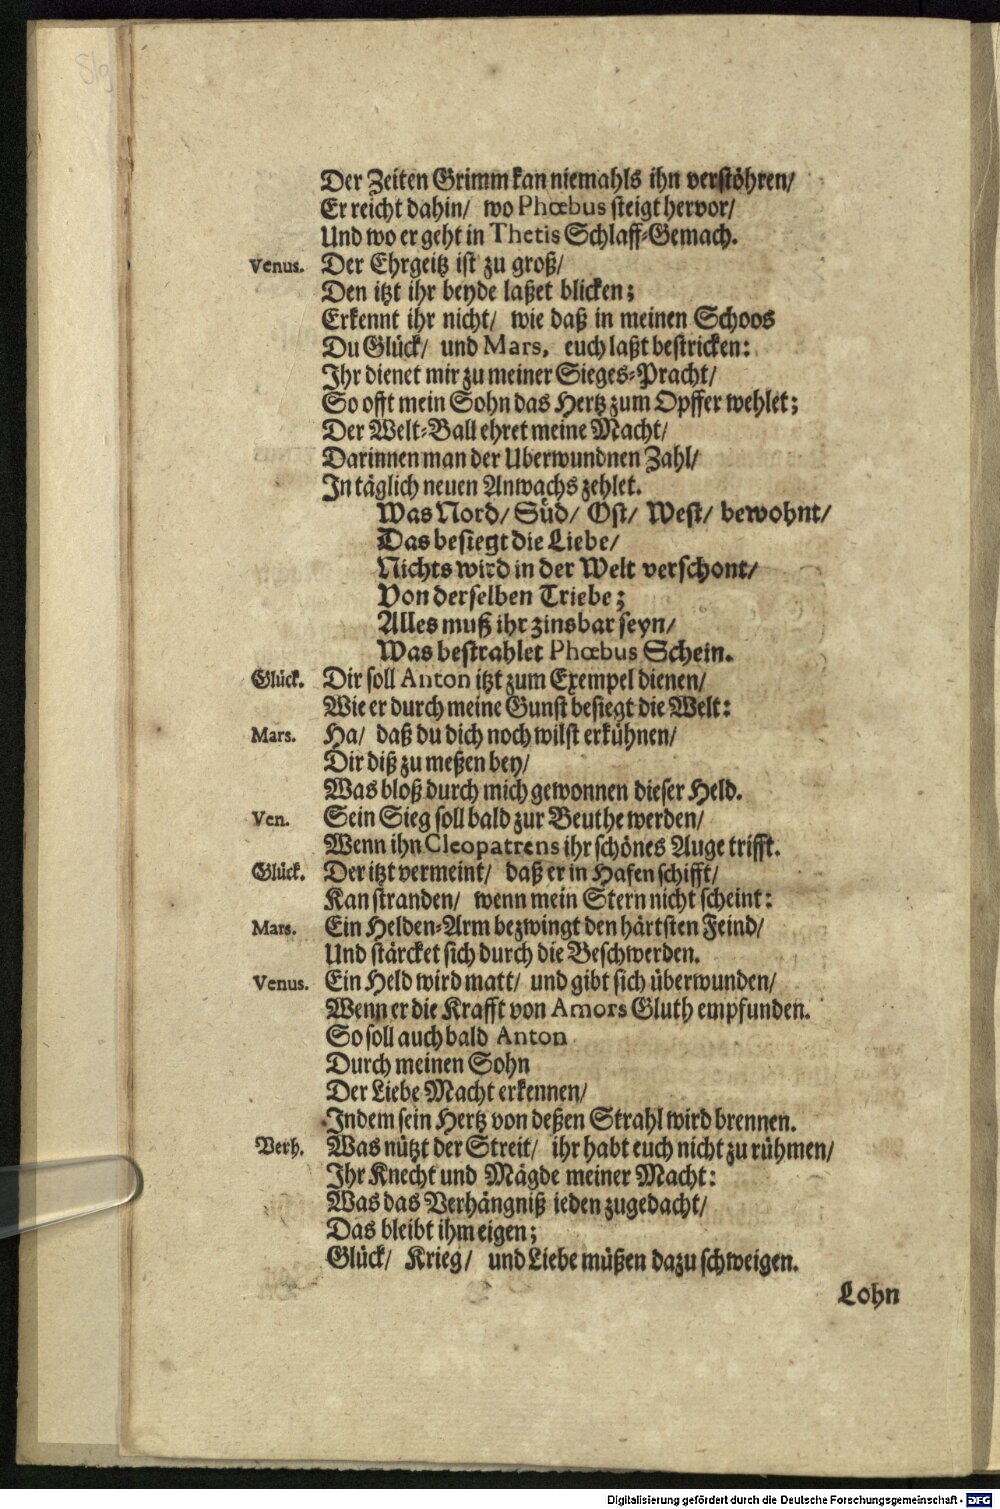 Der Zeiten Grimm kan niemahls ihn verstöhren/
Er reicht dahin/ wo Phœbus steigt hervor/
Und wo er geht in Thetis Schlaff-Gemach.
Venus. Der Ehrgeitz ist zu groß/
Den itzt ihr beyde laßet blicken;
Erkennt ihr nicht/ wie daß in meinen Schoos
Du Glück/ und Mars, euch laßt bestricken:
Ihr dienet mir zu meiner Sieges-Pracht/
So offt mein Sohn das Hertz zum Opffer wehlet;
Der Welt-Ball ehret meine Macht/
Darinnen man der Uberwundnen Zahl/
In täglich neuen Anwachs zehlet.
Was Nord/ Süd/ Ost/ West/ bewohnt/
Das besiegt die Liebe/
Nichts wird in der Welt verschont/
Von derselben Triebe;
Alles muß ihr zinsbar seyn/
Was bestrahlet Phœbus Schein.
Glück. Dir soll Anton itzt zum Exempel dienen/
Wie er durch meine Gunst besiegt die Welt:
Mars. Ha/ daß du dich noch wilst erkühnen/
Dir diß zu meßen bey/
Was bloß durch mich gewonnen dieser Held.
Ven. Sein Sieg soll bald zur Beuthe werden/
Wenn ihn Cleopatrens ihr schönes Auge trifft.
Glück. Der itzt vermeint/ daß er in Hafen schifft/
Kan stranden/ wenn mein Stern nicht scheint:
Mars. Ein Helden-Arm bezwingt den härtsten Feind/
Und stärcket sich durch die Beschwerden.
Venus. Ein Held wird matt/ und gibt sich überwunden/
Wenn er die Krafft von Amors Gluth empfunden.
So soll auch bald Anton
Durch meinen Sohn
Der Liebe Macht erkennen/
Indem sein Hertz von deßen Strahl wird brennen.
Verh. Was nützt der Streit/ ihr habt euch nicht zu rühmen/
Ihr Knecht und Mägde meiner Macht:
Was das Verhängniß ieden zugedacht/
Das bleibt ihm eigen;
Glück/ Krieg/ und Liebe müßen dazu schweigen.
Lohn
Digitalisierung gefördert durch die Deutsche Forschungsgemeinschaft - DFG